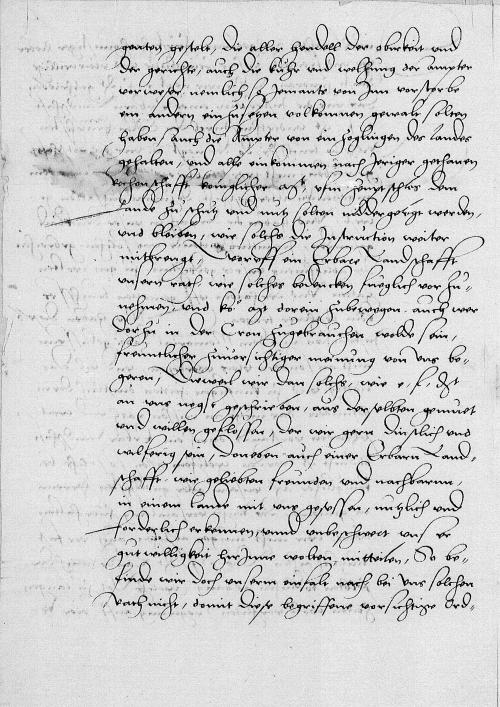 genten gestelt, die aller hendell der obrikeit und
der gerichte, auch die kuhr und welhung der ampter
vorweser, nemlich so jemants von jnn vorstorbe
ein andern einzusetzen volkommen gewalt solten
haben, auch die Ampter von einzoglingen des landes
gehalten, und alle einkommen nach jeriger gethanen
Rechenschafft koniglicher ufm haupt schlos dem
Lande zu schutz und nutz solten niddergelegt werden,
und bleiben, wie solchs die Instruction weiter
mitbrengt, Woruff ein Erbare Landschafft
unsern rath, wie solches bedencken fuglich vor zu-
nehmen, und ko: dorein zubewegen. auch wer
dorzu in der Cron zugebrauchen wolde sein,
freuntlicher zuvorsichtiger meinung von uns be-
geren, Dieweil wir dan solchs, wie e. f. g.
an uns negst geschrieben, aus derselbten gemuet
und willen geflossen, der wir gern dinstlich und
walferig sein, doneben auch einer Erbarn Land-
schafft, wie geliebten freunden und nachbarn,
in einem lande mit uns gesessen, nutzlich und
forderlich erkennen, unnd unbeschwert unsere
gutwilligkeit hirJnne wolten mitteilen, So be-
finde wir doch unserm einfalt nach bei uns solchen
Rath nicht, domit diese begriffene vorsichtige Ord-